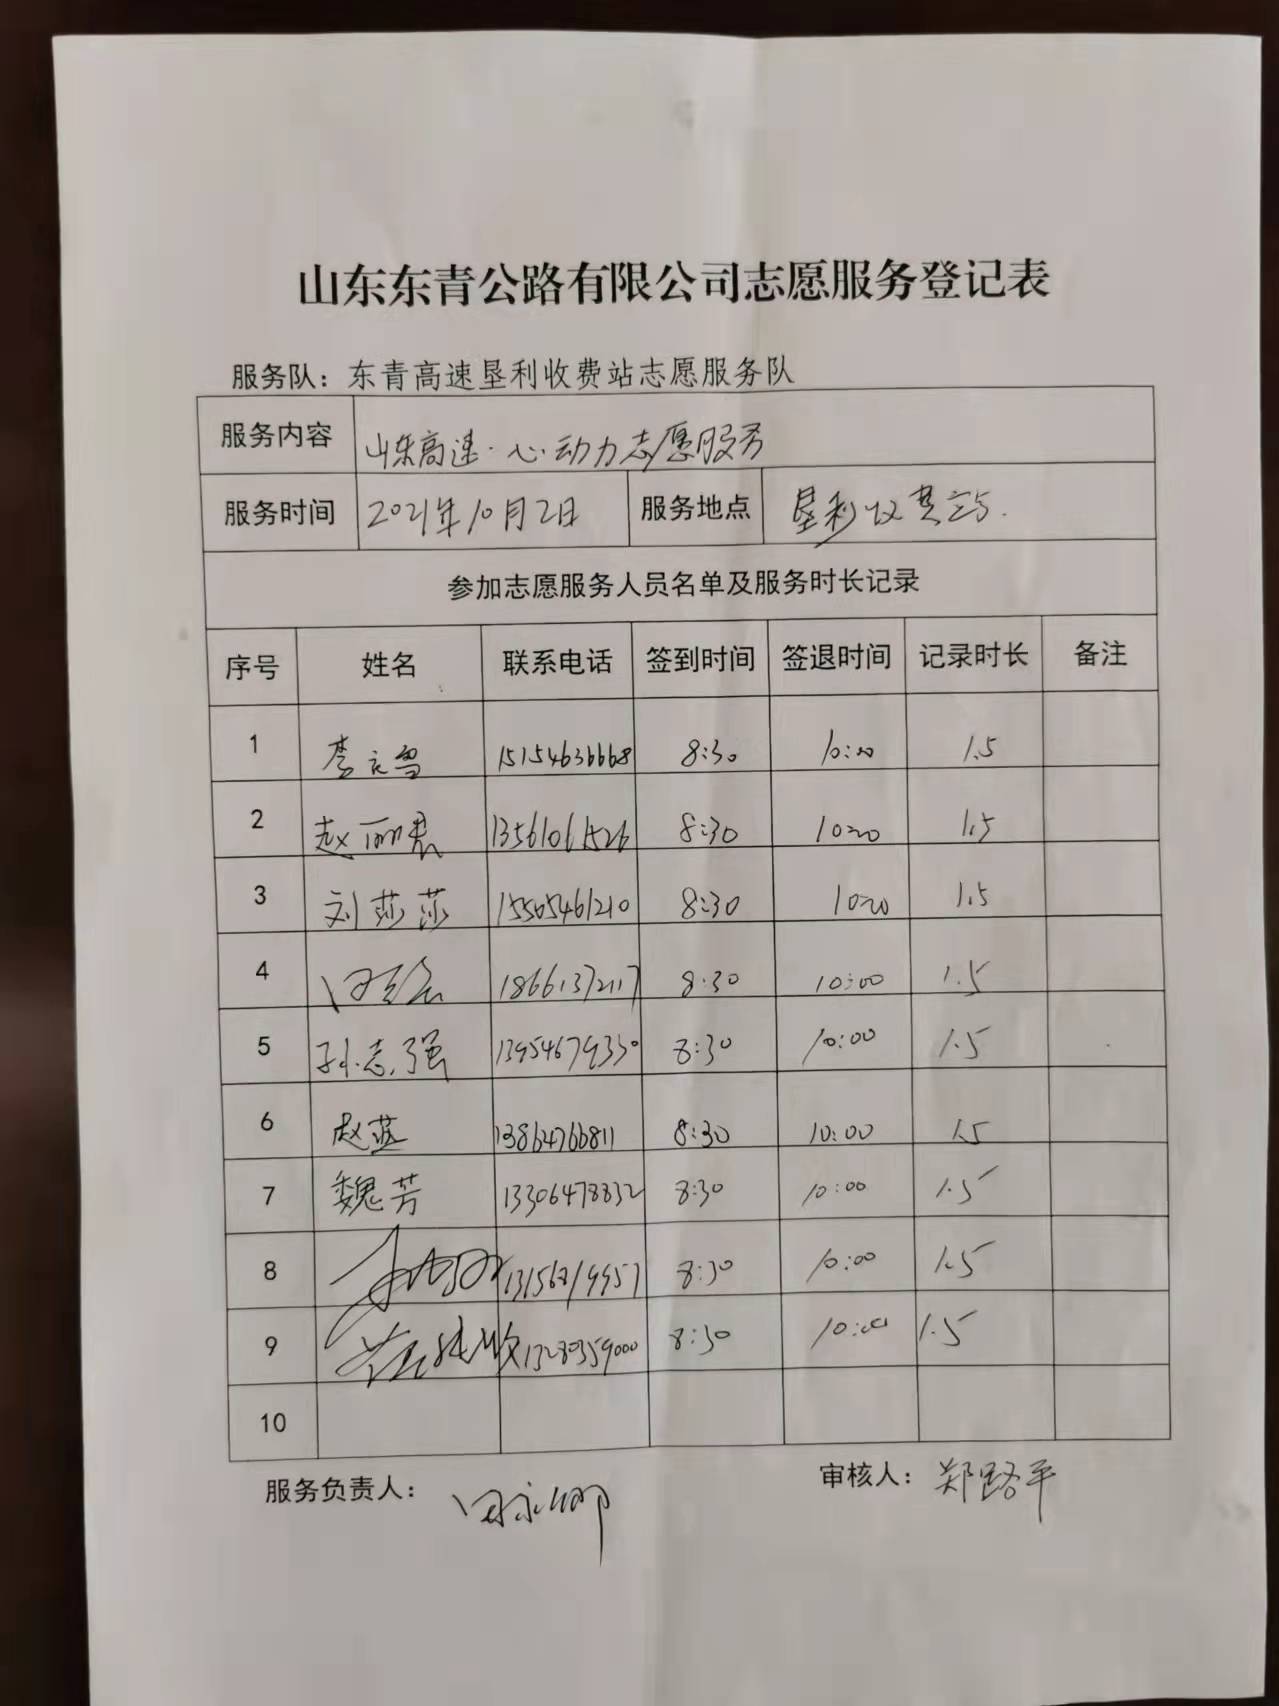 山东东青公路有限公司志愿服务登记表
服务队：东青高速垦利收费站志愿服务队
服务内容 山东高速·心动力志愿服务
服务时间 2021年10月2日 服务地点 垦利收费站.
参加志愿服务人员名单及服务时长记录
序号 姓名 联系电话 签到时间 签退时间 记录时长 备注
1 李立鲁 15154636668 8:30 10:00 1.5
2 赵丽君 13561061526 8:30 10:00 1.5
3 刘莎莎 15505461210 8:30 10:00 1.5
4 18661372117 8:30 10:00 1.5
5 孙志强 13954679330 8:30 10:00 1.5
6 赵蓝 13864766811 8:30 10:00 1.5
7 魏芳 13306478832 8:30 10:00 1.5
8 8:30 10:00 1.5
9 13280359000 8:30 10:00 1.5
10
服务负责人： 审核人：郑路平